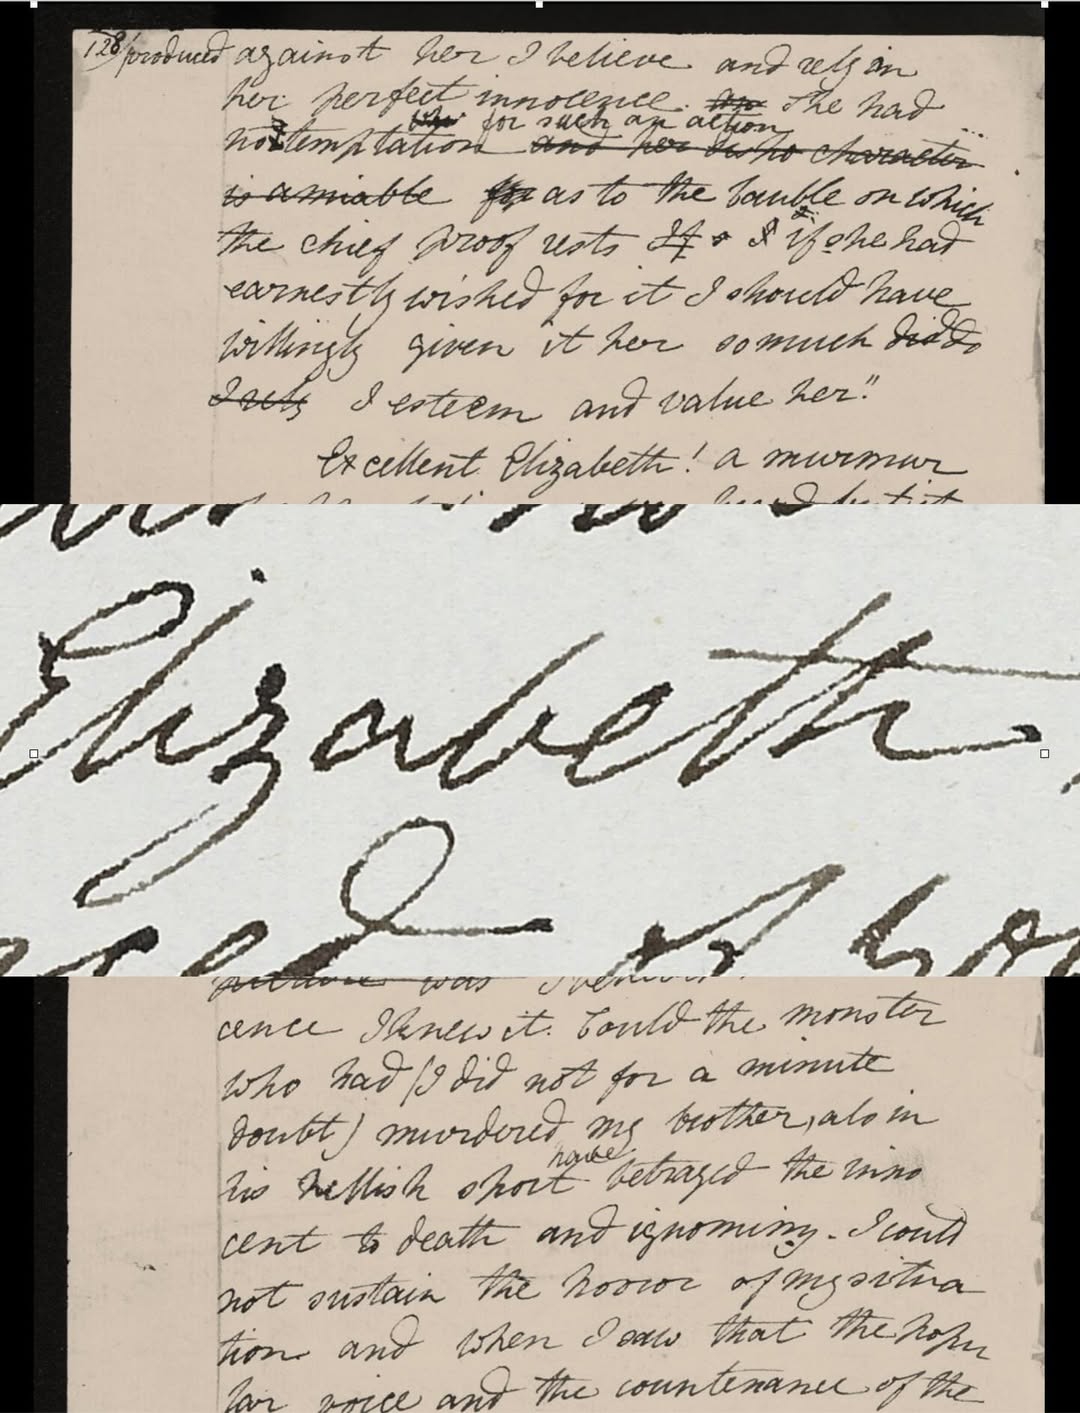 128/ produced against her I believe and rely on
her perfect innocence. She had
for such an action
no temptation and her character
is amiable for as to the bauble on which
the chief proof rests If if she had
earnestly wished for it I should have
willingly given it her so much did do
I rely I esteem and value her."
Excellent Elizabeth! a murmur
Elizabeth
was
cence I knew it. Could the monster
who had (I did not for a minute
doubt) murdered my brother, also in
have
his hellish sport betrayed the inno
cent to death and ignominy. I could
not sustain the horror of my situa
tion and when I saw that the popu
lar voice and the countenance of the